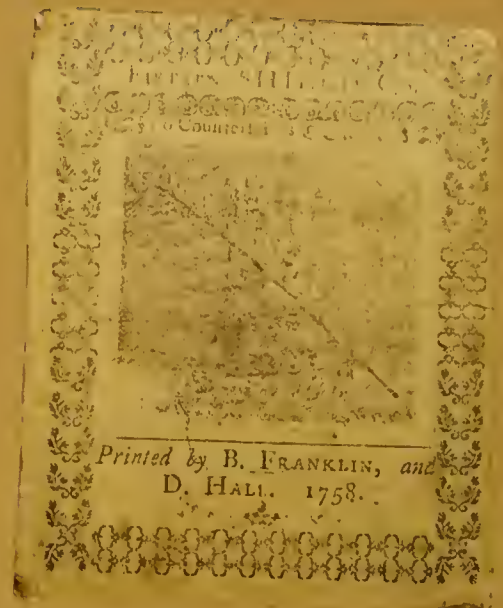 SHILLINGS.
to Counterfeit
Printed by B. FRANKLIN, and
D. HALL. 1758.